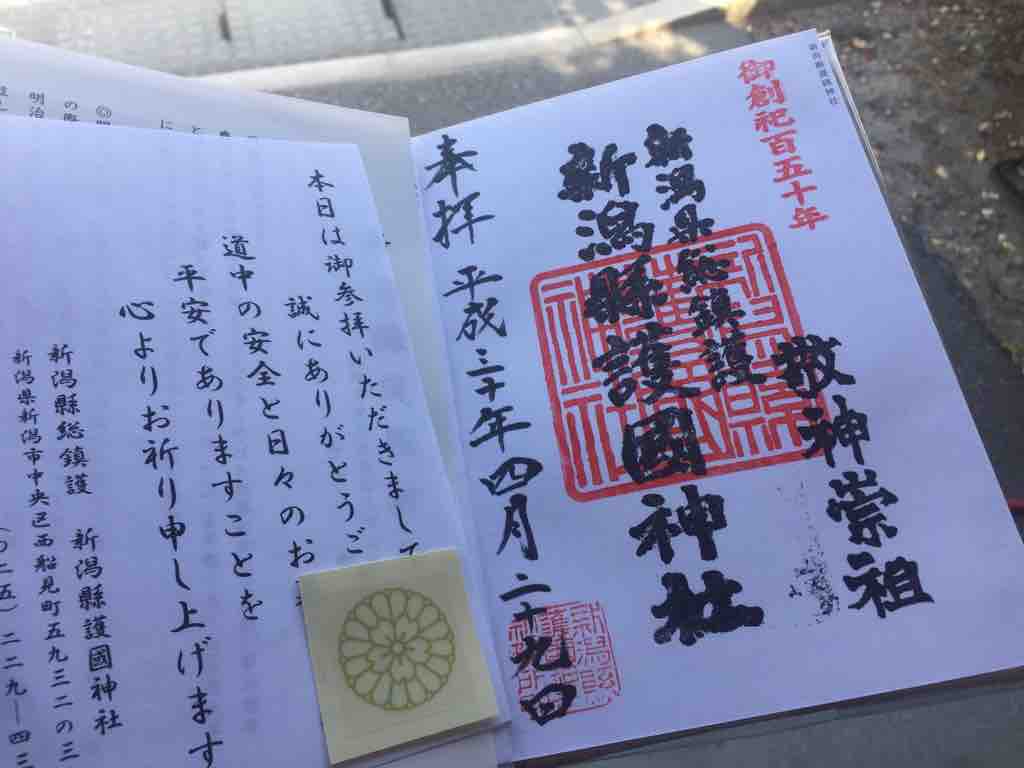 新潟縣護國神社
御創祀百五十年
敬神崇祖
新潟県総鎮護
新潟縣護國神社
奉拝 平成三十年四月二十九日
本日は御参拝いただきまして
誠にありがとうご
道中の安全と日々のお
平安でありますことを
心よりお祈り申し上げます
新潟縣総鎮護 新潟縣護國神社
新潟県新潟市中央区西船見町五九三二の三
(〇二五)二二九―四三
明治
の御